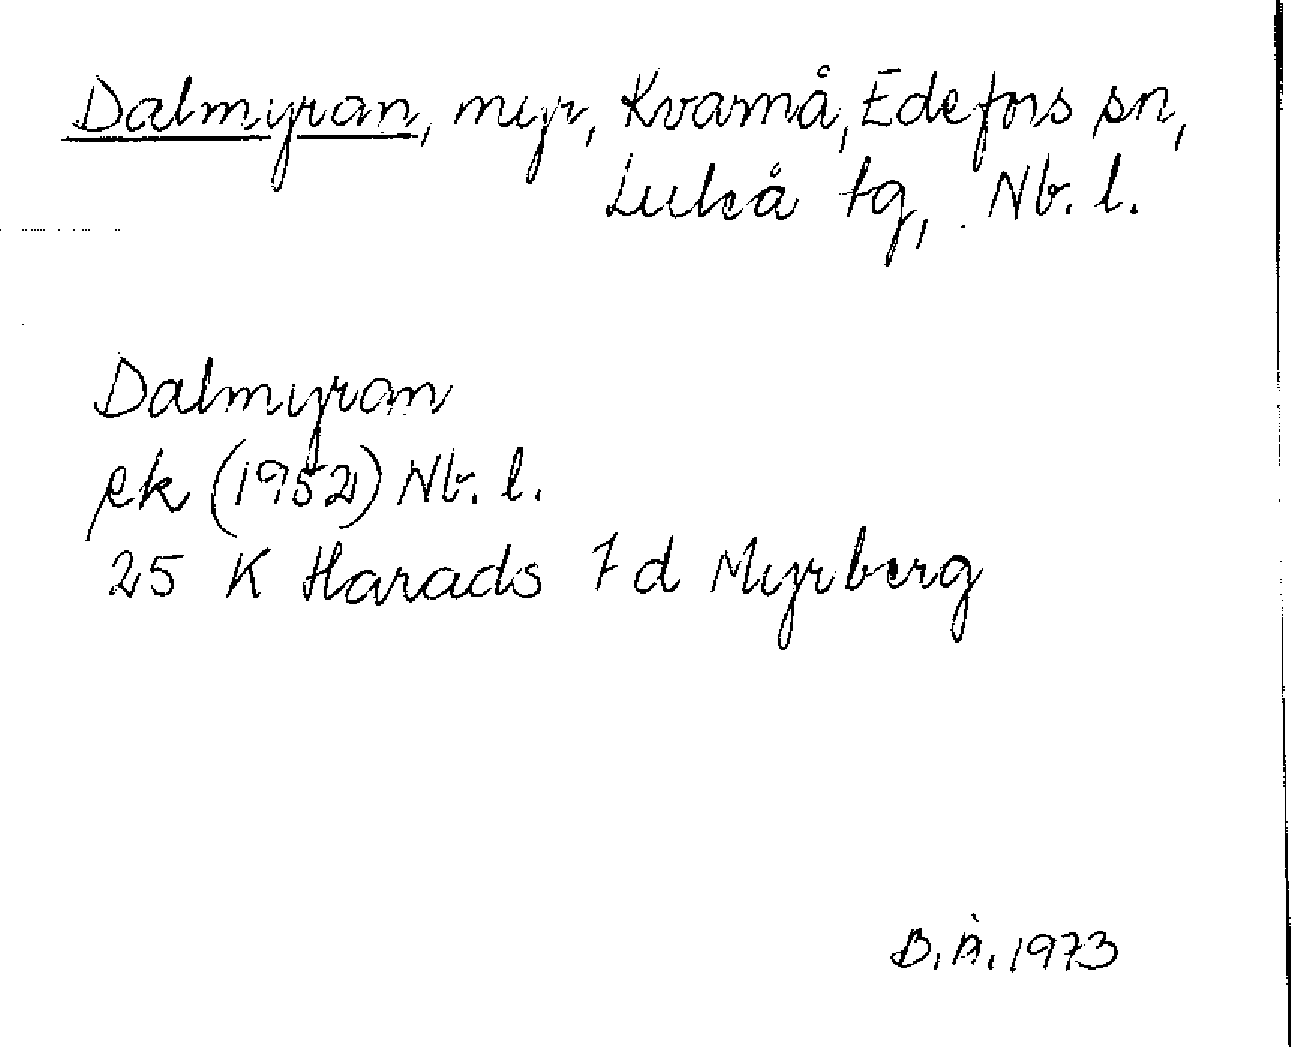 Dalmyran, myr, Kvarnå, Edefors sn,
Luleå tg, Nb. l.
Dalmyran
ek (1952) Nb. l.
25 K Harads 7 d Myrberg
B.Å. 1973